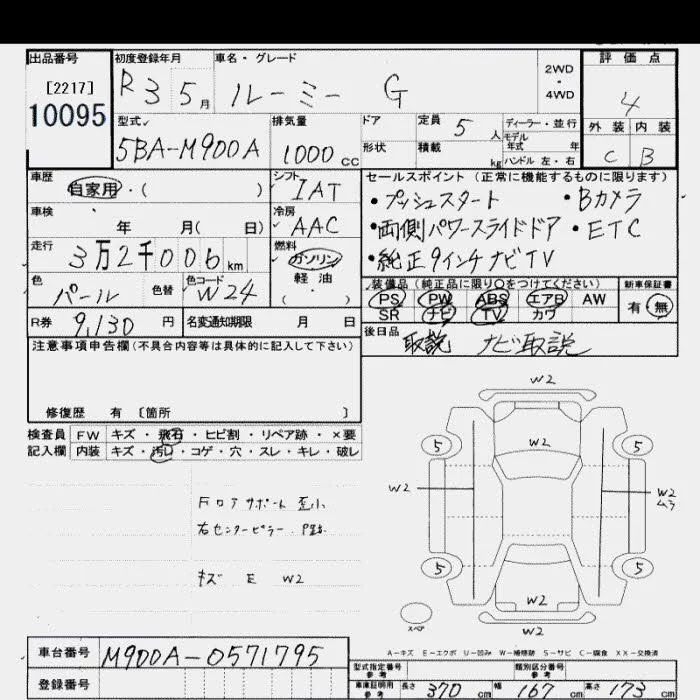 出品番号 初度登録年月 車名・グレード 2WD・4WD 評価点
[2217] R3 5月 ルーミー G 4
10095
型式 排気量 ドア 定員 5人 ディーラー・並行 外装 内装
モデル年式 年
5BA-M900A 1000cc 形状 積載 kg ハンドル 左・右 C B
車歴 シフト セールスポイント (正常に機能するものに限ります)
自家用・( ) IAT ・プッシュスタート ・Bカメラ
車検 年 月( 日) 冷房 AAC ・両側パワースライドドア ・ETC
走行 3万2千006km 燃料 ガソリン 軽油 ( ) ・純正9インチナビTV
色 パール 色替 色コード W24 装備品 (純正品に限り○をつけてください) 新車保証書
PS PW ABS エアB AW 有 無
SR ナビ TV カワ
R券 9,130円 名変通知期限 月 日 後日品 取説 ナビ取説
注意事項申告欄(不具合内容等は具体的に記入して下さい)
修復歴 有 〔箇所 〕
検査員 FW キズ・飛石・ヒビ割・リペア跡・×要
記入欄 内装 キズ・汚レ・コゲ・穴・スレ・キレ・破レ
W2
5 W2 5
W2 W2
ムラ
FロアサポートE小
右センターピラー
キズ E W2
5 5
W2
スペア W2
A-キズ E-エクボ U-凹み W-補修跡 S-サビ C-腐食 XX-交換済
車台番号 M900A-0571795
型式指定番号 参考 類別区分番号 参考
登録番号 車庫証明用 参考 長さ 370cm 幅 167cm 高さ 173cm